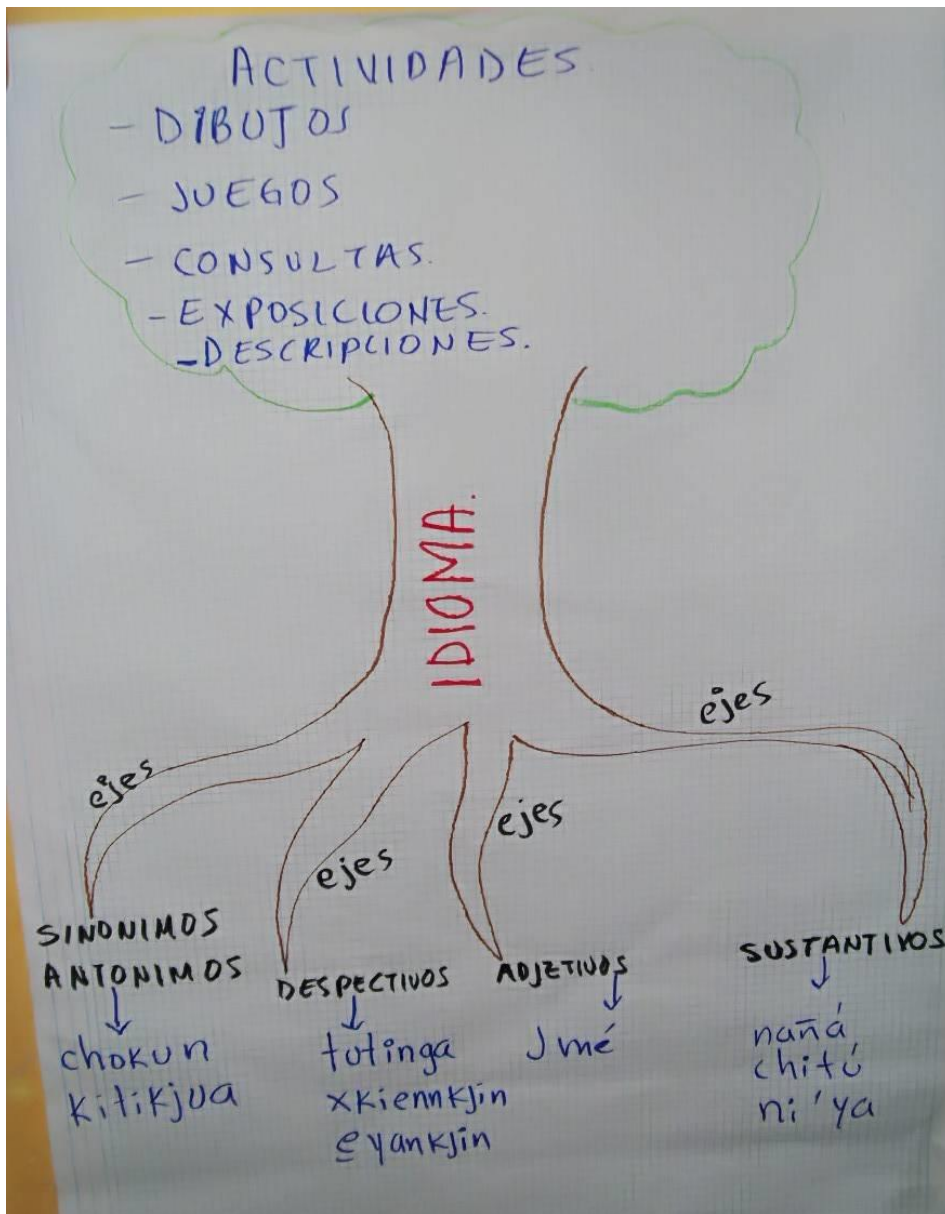 ACTIVIDADES
- DIBUJOS
- JUEGOS
- CONSULTAS.
- EXPOSICIONES.
- DESCRIPCIONES.
IDIOMA.
ejes
ejes
ejes
ejes
SINONIMOS
ANTONIMOS
chokun
kitikjua
DESPECTIVOS
tutinga
xkiennkjin
eyankjin
ADJETIVOS
Jmé
SUSTANTIVOS
nañá
chitú
ni'ya